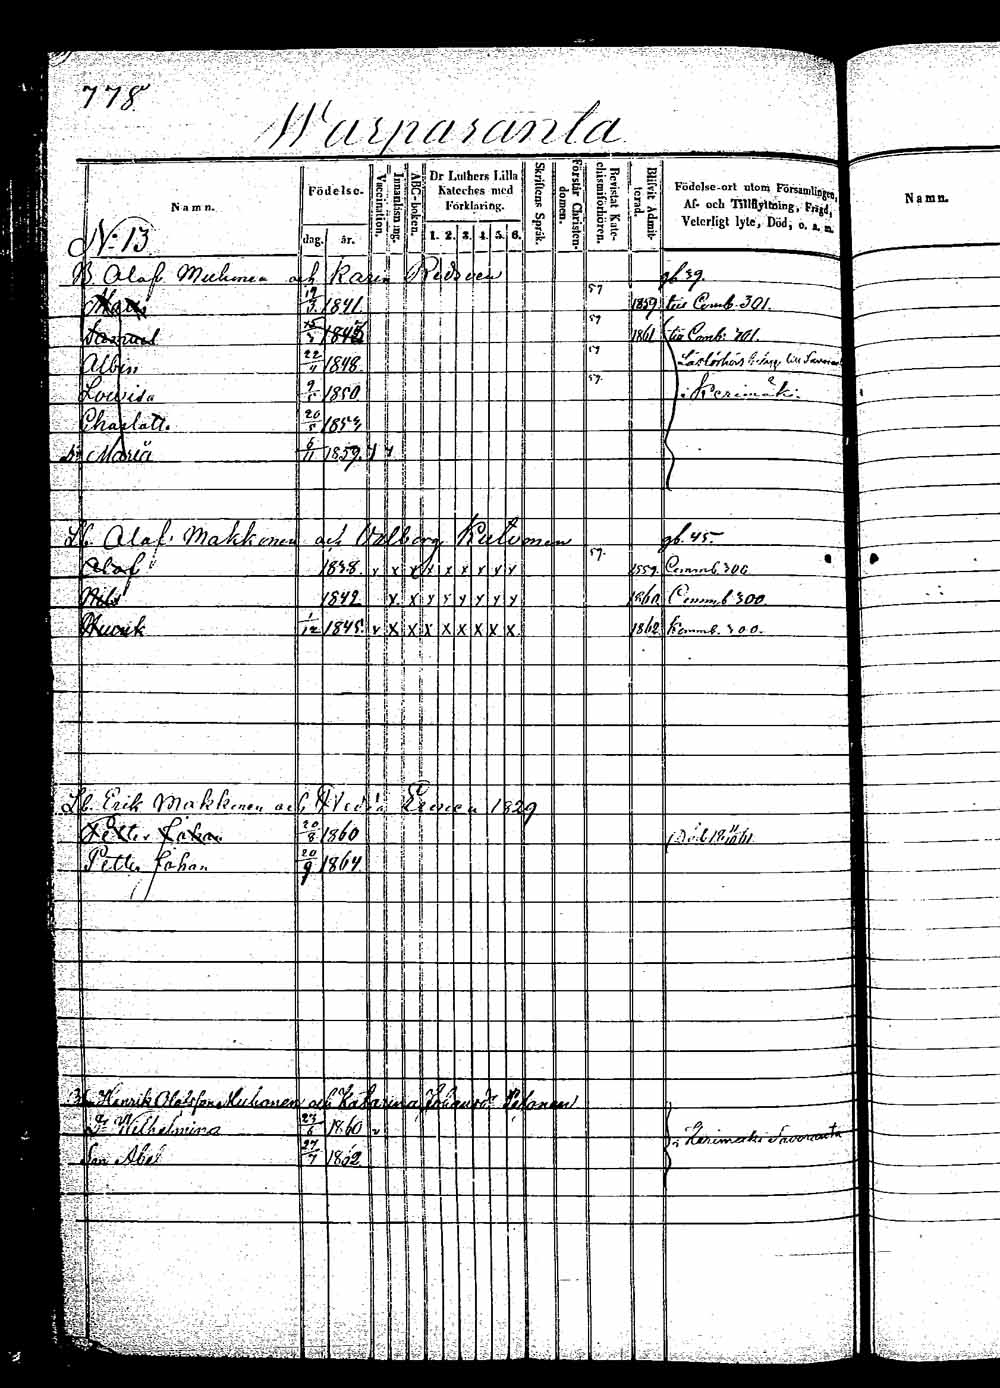 778.
Warparanta
Namn.
Födelse-
dag. år.
Vaccination.
Innanläsning.
ABC-boken.
Dr Luthers Lilla Kateches med Förklaring.
1. 2. 3. 4. 5. 6.
Skriftens Språk.
Förstår Christendomen.
Bevistat Katechismiförhören.
Blifvit Admitterad.
Födelse-ort utom Församlingen, Af- och Tillflyttning, Frägd, Veterligt lyte, Död, o. a. m.
Namn.
No 13
B. Olof Muhonen och Karin gb 39.
19/3 1841. 57 1859 till Comb. 301.
Samuel 57 1861 till Comb. 301.
Albin 22/11 1848. 57
Lovisa 1850 57. i Kerimäki.
Charlott. 20/5 1853
Dr Maria 6/11 1859.
Lb. Olof Makkonen och Valborg gb. 45.
Olof 1838. x x x x x x x x x 57. 1859. Commb. 300
Nils 1842 x x x x x x x x 1860 Commb 300
Henrik 1/12 1845. x x x x x x x x x 1862 Kommb. 300.
Lb. Erik Makkonen och 1829
Petter Johan 20/8 1860 Död
Petter Johan 20/9 1864.
Henrik Olofsson Muhonen och Katarina
Dr Wilhelmina 23/6 1860 i Kerimäki Savoranta
Son Abel 27/7 1862